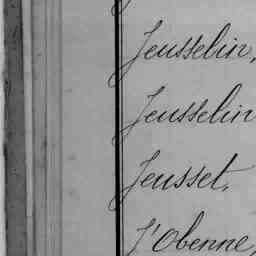 Jeusselin,
Jeusselin
Jeusset,
J'Obenne,